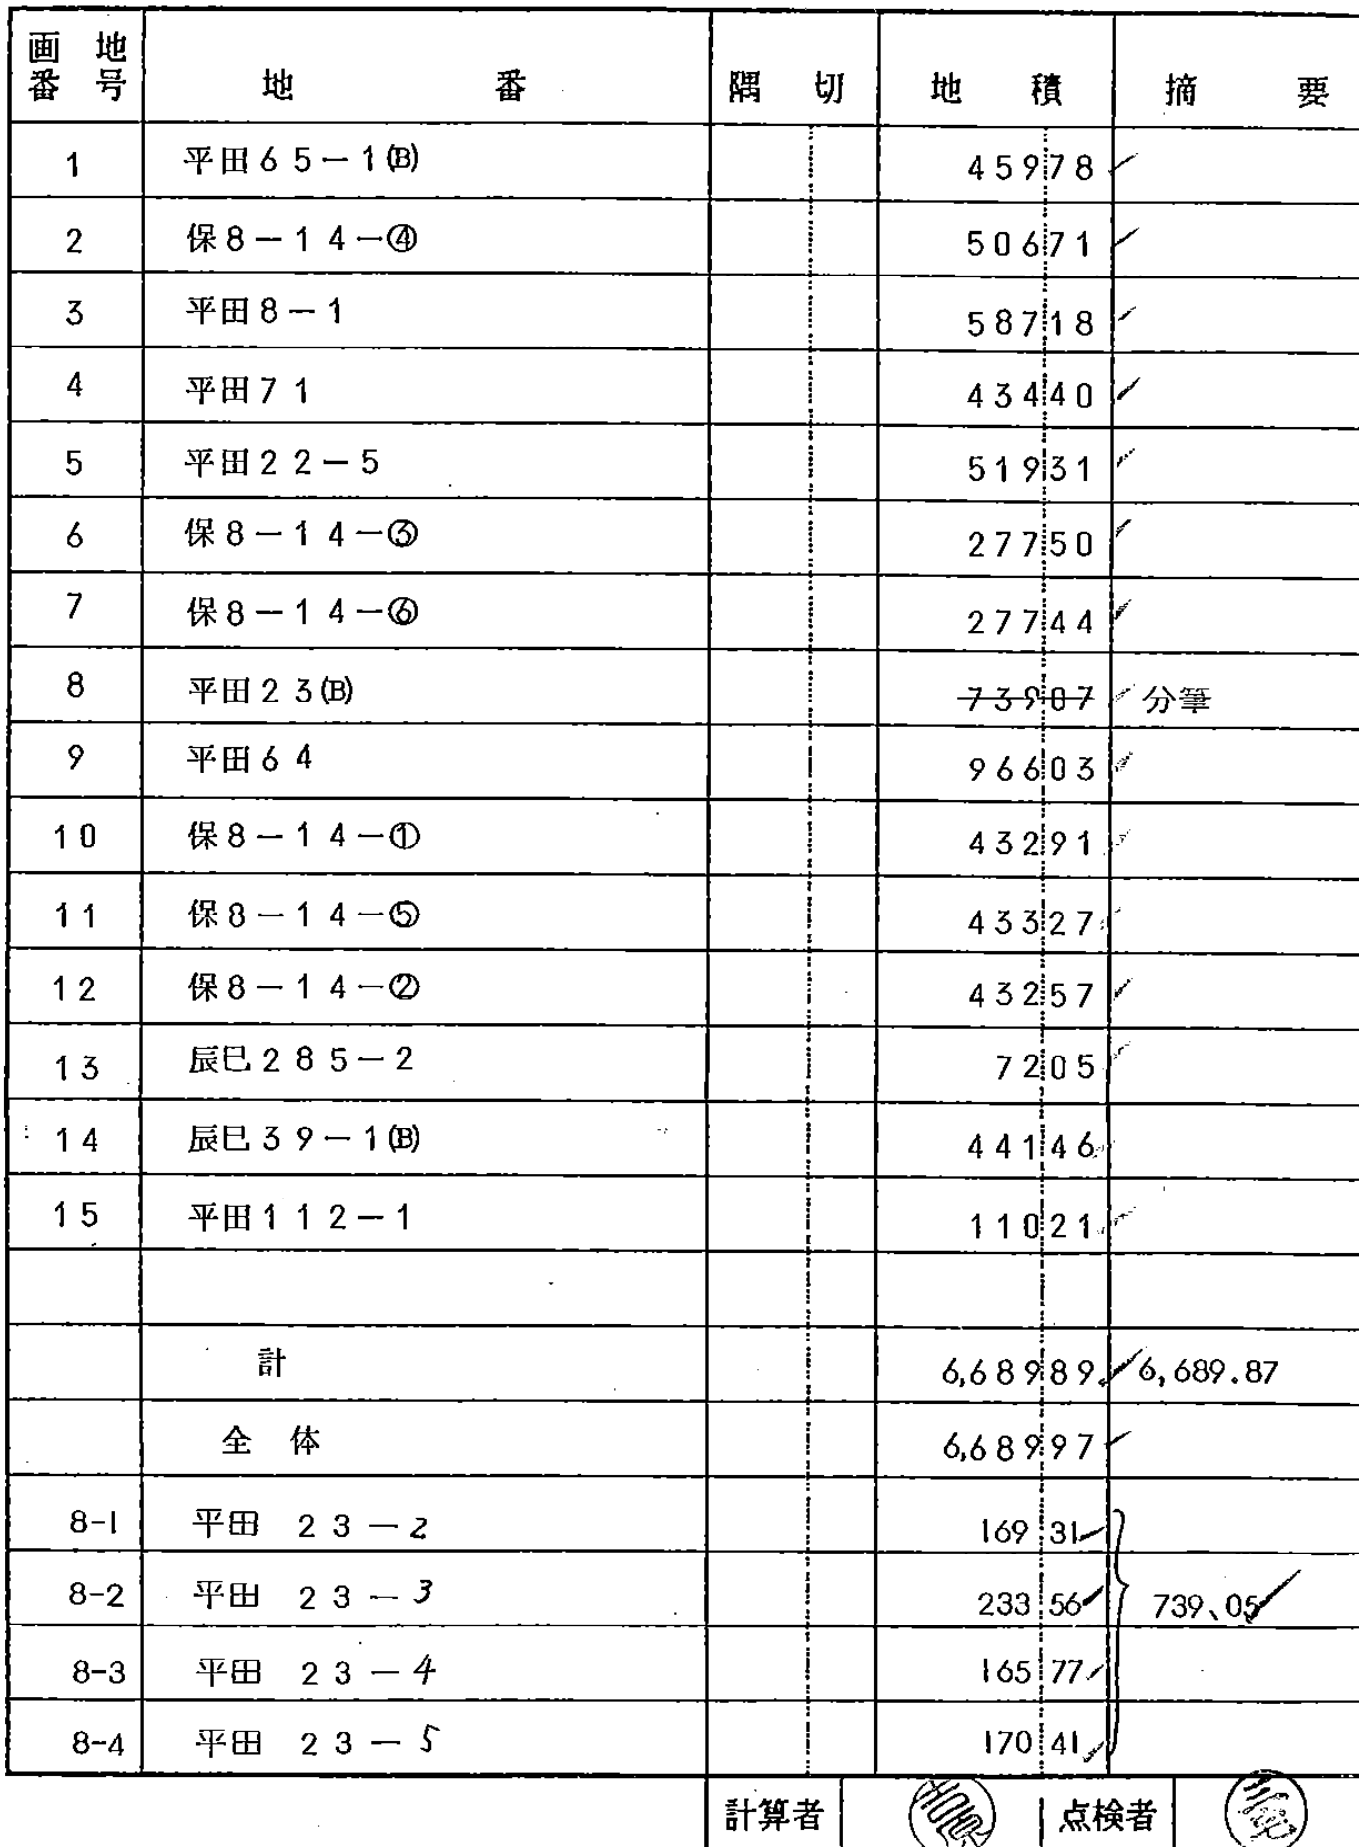 画地番号 地番 隅切 地積 摘要
1 平田65-1(B) 459 78
2 保8-14-④ 506 71
3 平田8-1 587 18
4 平田71 434 40
5 平田22-5 519 31
6 保8-14-③ 277 50
7 保8-14-⑥ 277 44
8 平田23(B) 739 07 分筆
9 平田64 966 03
10 保8-14-① 432 91
11 保8-14-⑤ 433 27
12 保8-14-② 432 57
13 辰巳285-2 72 05
14 辰巳39-1(B) 441 46
15 平田112-1 110 21
計 6,689 89 6,689.87
全体 6,689 97
8-1 平田 23-2 169 31
8-2 平田 23-3 233 56 739、05
8-3 平田 23-4 165 77
8-4 平田 23-5 170 41
計算者 点検者